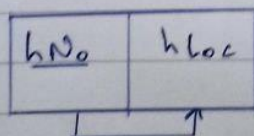 hNo
hLoc